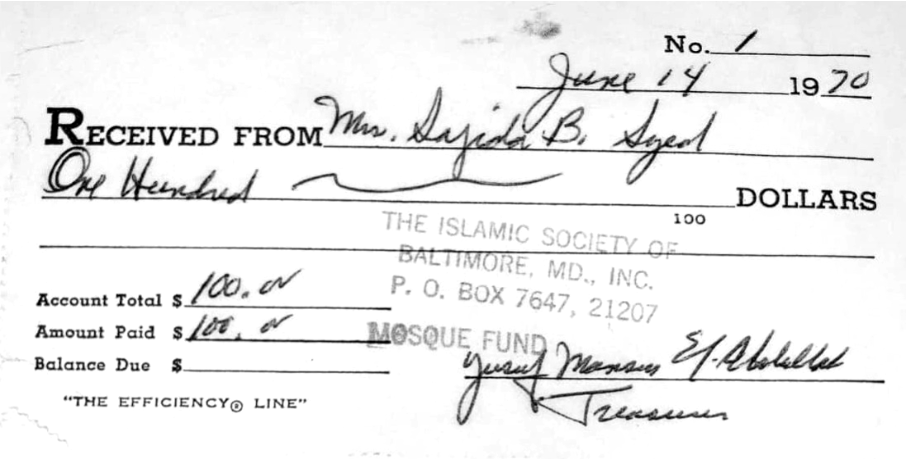 No. 1
June 14 1970
RECEIVED FROM Mrs. Sajida B. Syed
One Hundred DOLLARS
100
THE ISLAMIC SOCIETY OF
BALTIMORE, MD., INC.
P. O. BOX 7647, 21207
MOSQUE FUND
Account Total $ 100.00
Amount Paid $ 100.00
Balance Due $
Yusuf Mansur
Treasurer
"THE EFFICIENCY® LINE"